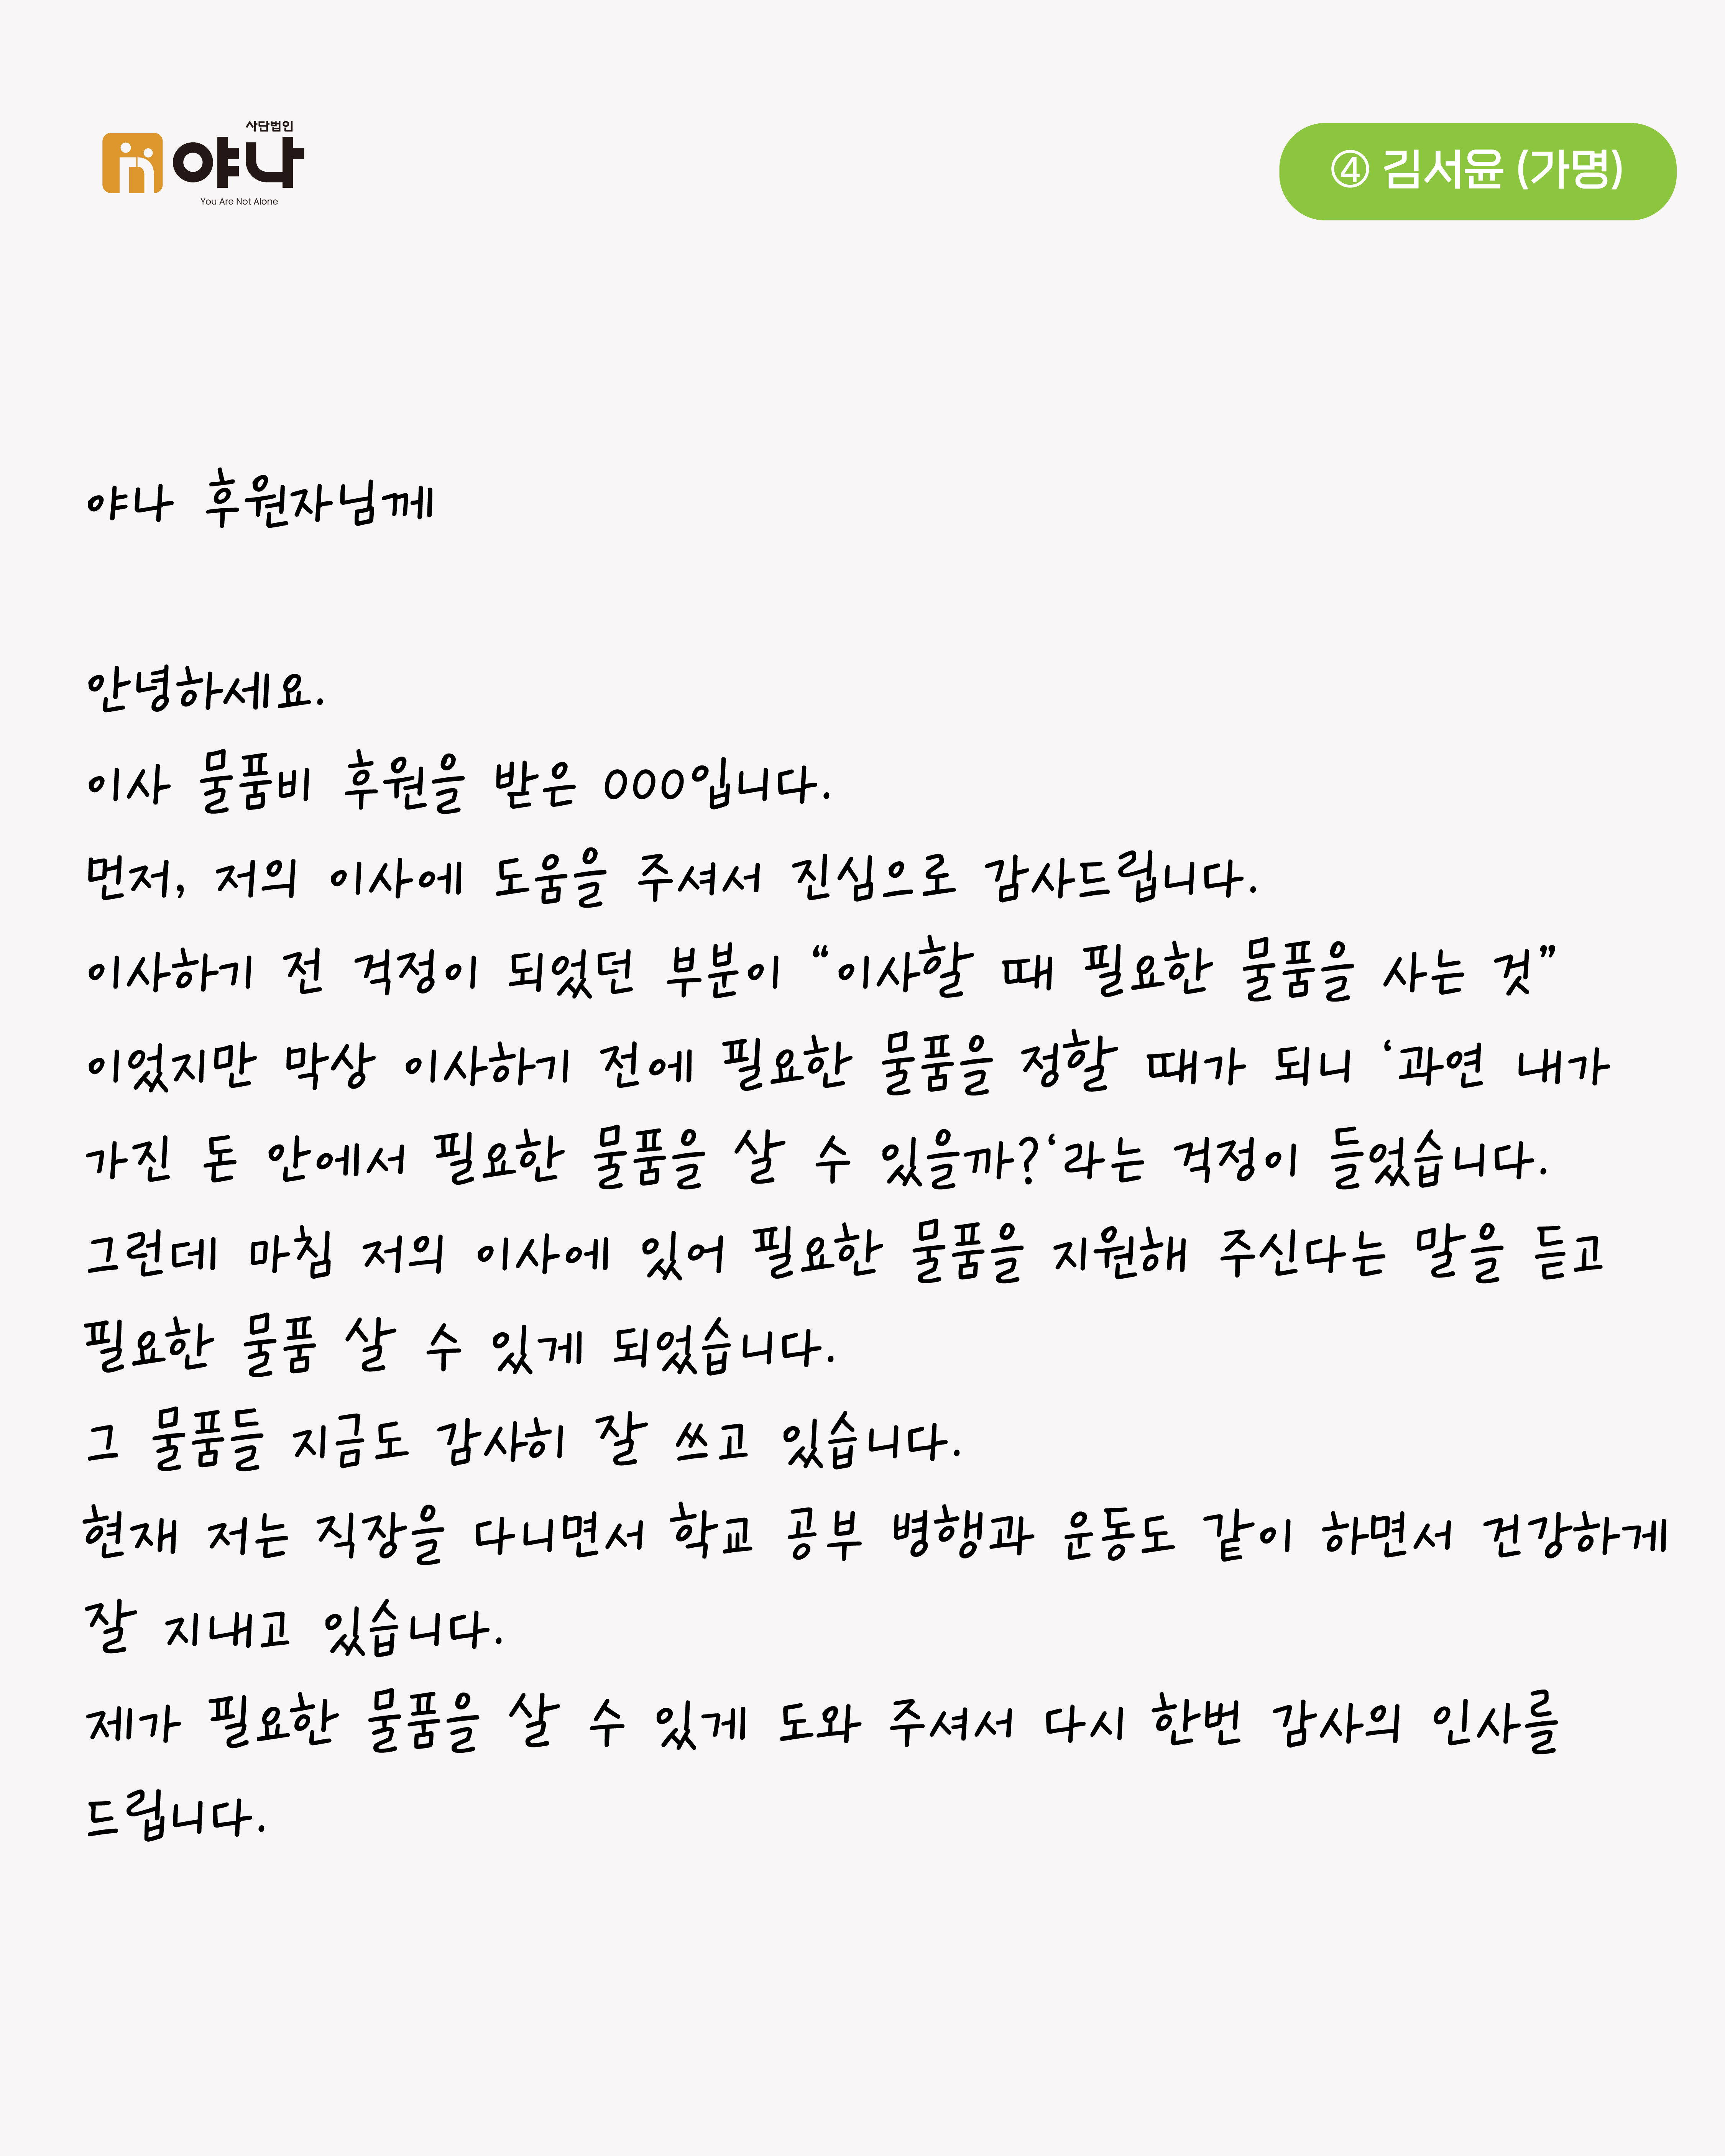 사단법인
야나
You Are Not Alone
④ 김서윤 (가명)
야나 후원자님께
안녕하세요.
이사 물품비 후원을 받은 000입니다.
먼저, 저의 이사에 도움을 주셔서 진심으로 감사드립니다.
이사하기 전 걱정이 되었던 부분이 “이사할 때 필요한 물품을 사는 것”
이었지만 막상 이사하기 전에 필요한 물품을 정할 때가 되니 ‘과연 내가
가진 돈 안에서 필요한 물품을 살 수 있을까?‘라는 걱정이 들었습니다.
그런데 마침 저의 이사에 있어 필요한 물품을 지원해 주신다는 말을 듣고
필요한 물품 살 수 있게 되었습니다.
그 물품들 지금도 감사히 잘 쓰고 있습니다.
현재 저는 직장을 다니면서 학교 공부 병행과 운동도 같이 하면서 건강하게
잘 지내고 있습니다.
제가 필요한 물품을 살 수 있게 도와 주셔서 다시 한번 감사의 인사를
드립니다.